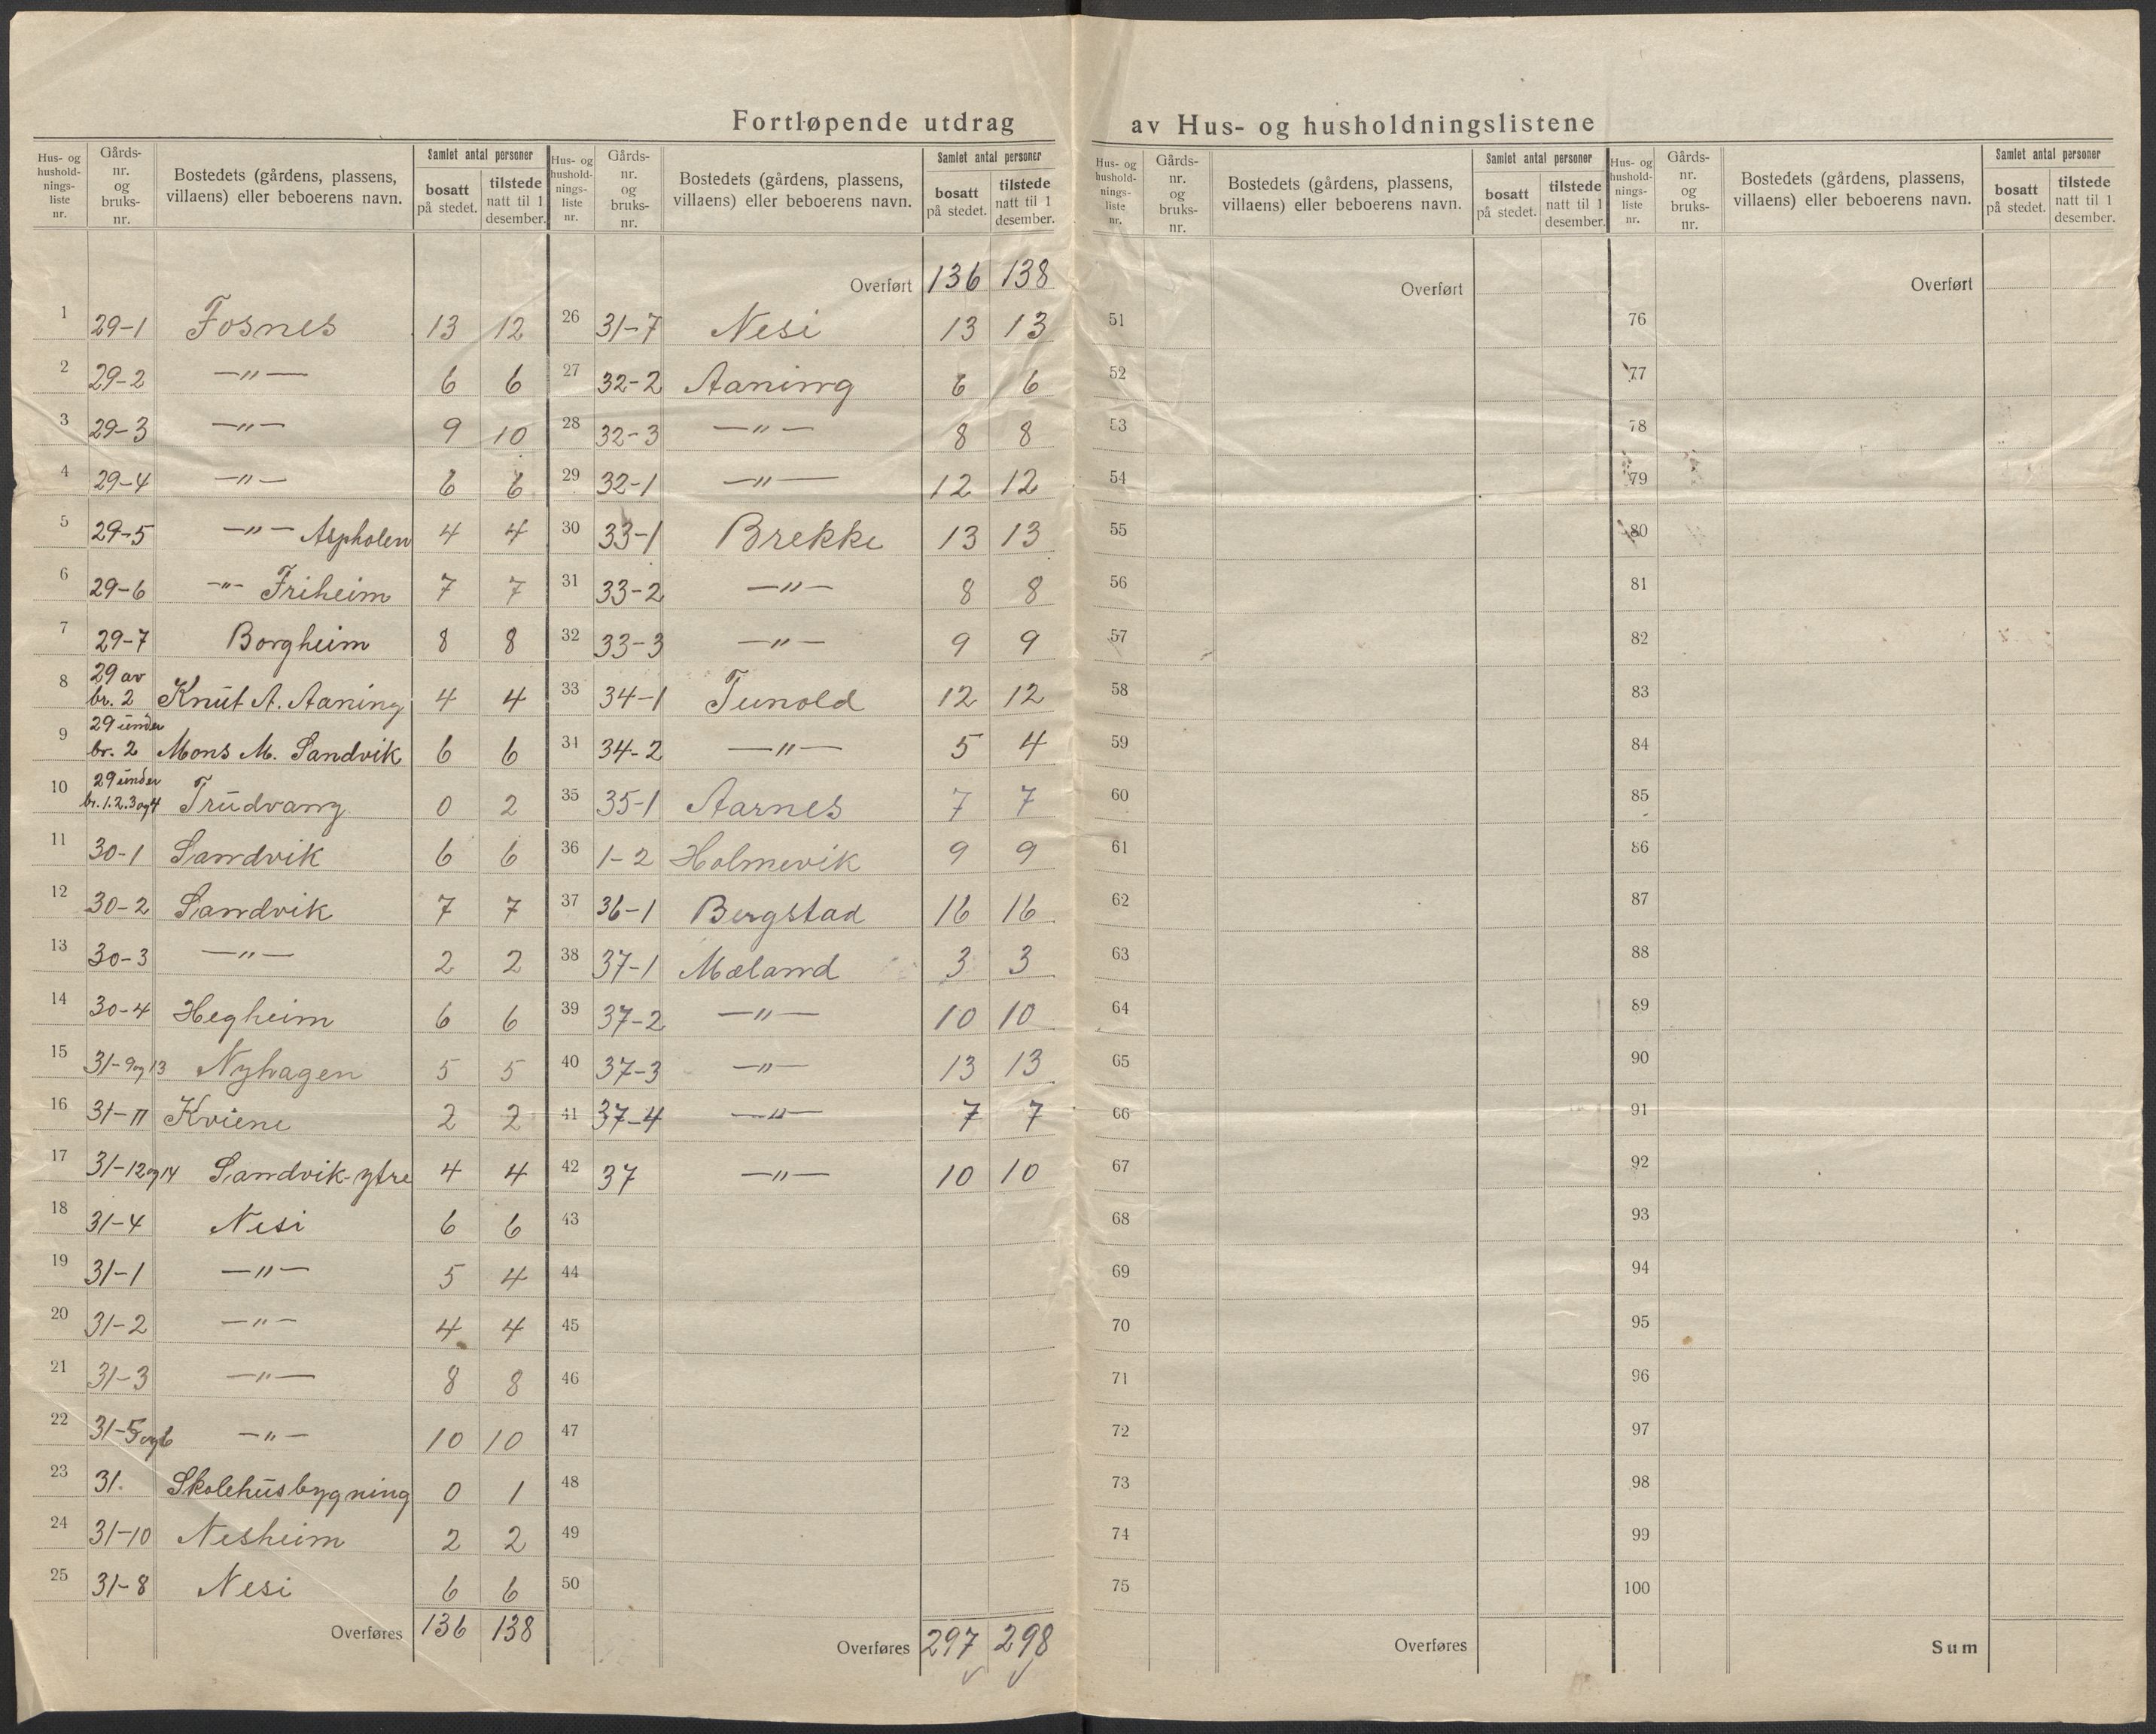 Fortløpende utdrag av Hus- og husholdningslistene
Hus- og hushold-nings-liste nr. | Gårds-nr. og bruks-nr. | Bostedets (gårdens, plassens, villaens) eller beboerens navn. | Samlet antal personer | bosatt på stedet. | tilstede natt til 1 desember.
1 29-1 Fosnes 13 12
2 29-2 —"— 6 6
3 29-3 —"— 9 10
4 29-4 —"— 6 6
5 29-5 —"— Aspholen 4 4
6 29-6 —"— Friheim 7 7
7 29-7 Borgheim 8 8
8 29 av br. 2 Knut A. Aaning 4 4
9 29 under br. 2 Mons M. Sandvik 6 6
10 29 under br. 1.2.3 og 4 Trudvang 0 2
11 30-1 Sandvik 6 6
12 30-2 Sandvik 7 7
13 30-3 —"— 2 2
14 30-4 Hegheim 6 6
15 31-9 og 13 Nyhagen 5 5
16 31-11 Kviene 2 2
17 31-12 og 14 Sandvik-ytre 4 4
18 31-4 Nesi 6 6
19 31-1 —"— 5 4
20 31-2 —"— 4 4
21 31-3 —"— 8 8
22 31-5 og 6 —"— 10 10
23 31. Skolehusbygning 0 1
24 31-10 Nesheim 2 2
25 31-8 Nesi 6 6
Overføres 136 138
Hus- og hushold-nings-liste nr. | Gårds-nr. og bruks-nr. | Bostedets (gårdens, plassens, villaens) eller beboerens navn. | Samlet antal personer | bosatt på stedet. | tilstede natt til 1 desember.
Overført 136 138
26 31-7 Nesi 13 13
27 32-2 Aaning 6 6
28 32-3 —"— 8 8
29 32-1 —"— 12 12
30 33-1 Brekke 13 13
31 33-2 —"— 8 8
32 33-3 —"— 9 9
33 34-1 Tunold 12 12
34 34-2 —"— 5 4
35 35-1 Aarnes 7 7
36 1-2 Holmevik 9 9
37 36-1 Bergstad 16 16
38 37-1 Mæland 3 3
39 37-2 —"— 10 10
40 37-3 —"— 13 13
41 37-4 —"— 7 7
42 37 —"— 10 10
43
44
45
46
47
48
49
50
Overføres 297 298
Hus- og hushold-nings-liste nr. | Gårds-nr. og bruks-nr. | Bostedets (gårdens, plassens, villaens) eller beboerens navn. | Samlet antal personer | bosatt på stedet. | tilstede natt til 1 desember.
Overført
51
52
53
54
55
56
57
58
59
60
61
62
63
64
65
66
67
68
69
70
71
72
73
74
75
Overføres
Hus- og hushold-nings-liste nr. | Gårds-nr. og bruks-nr. | Bostedets (gårdens, plassens, villaens) eller beboerens navn. | Samlet antal personer | bosatt på stedet. | tilstede natt til 1 desember.
Overført
76
77
78
79
80
81
82
83
84
85
86
87
88
89
90
91
92
93
94
95
96
97
98
99
100
Sum